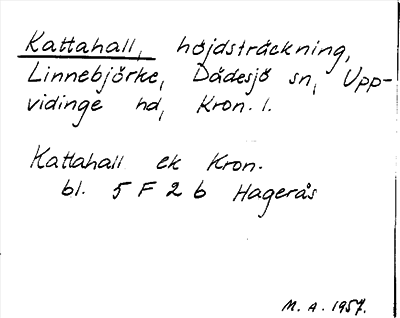 Kattahall, höjdsträckning,
Linnebjörke, Dädesjö sn, Upp-
vidinge hd, Kron. l.
Kattahall ek Kron.
bl. 5 F 2 b Hagerås
M. A. 1957.